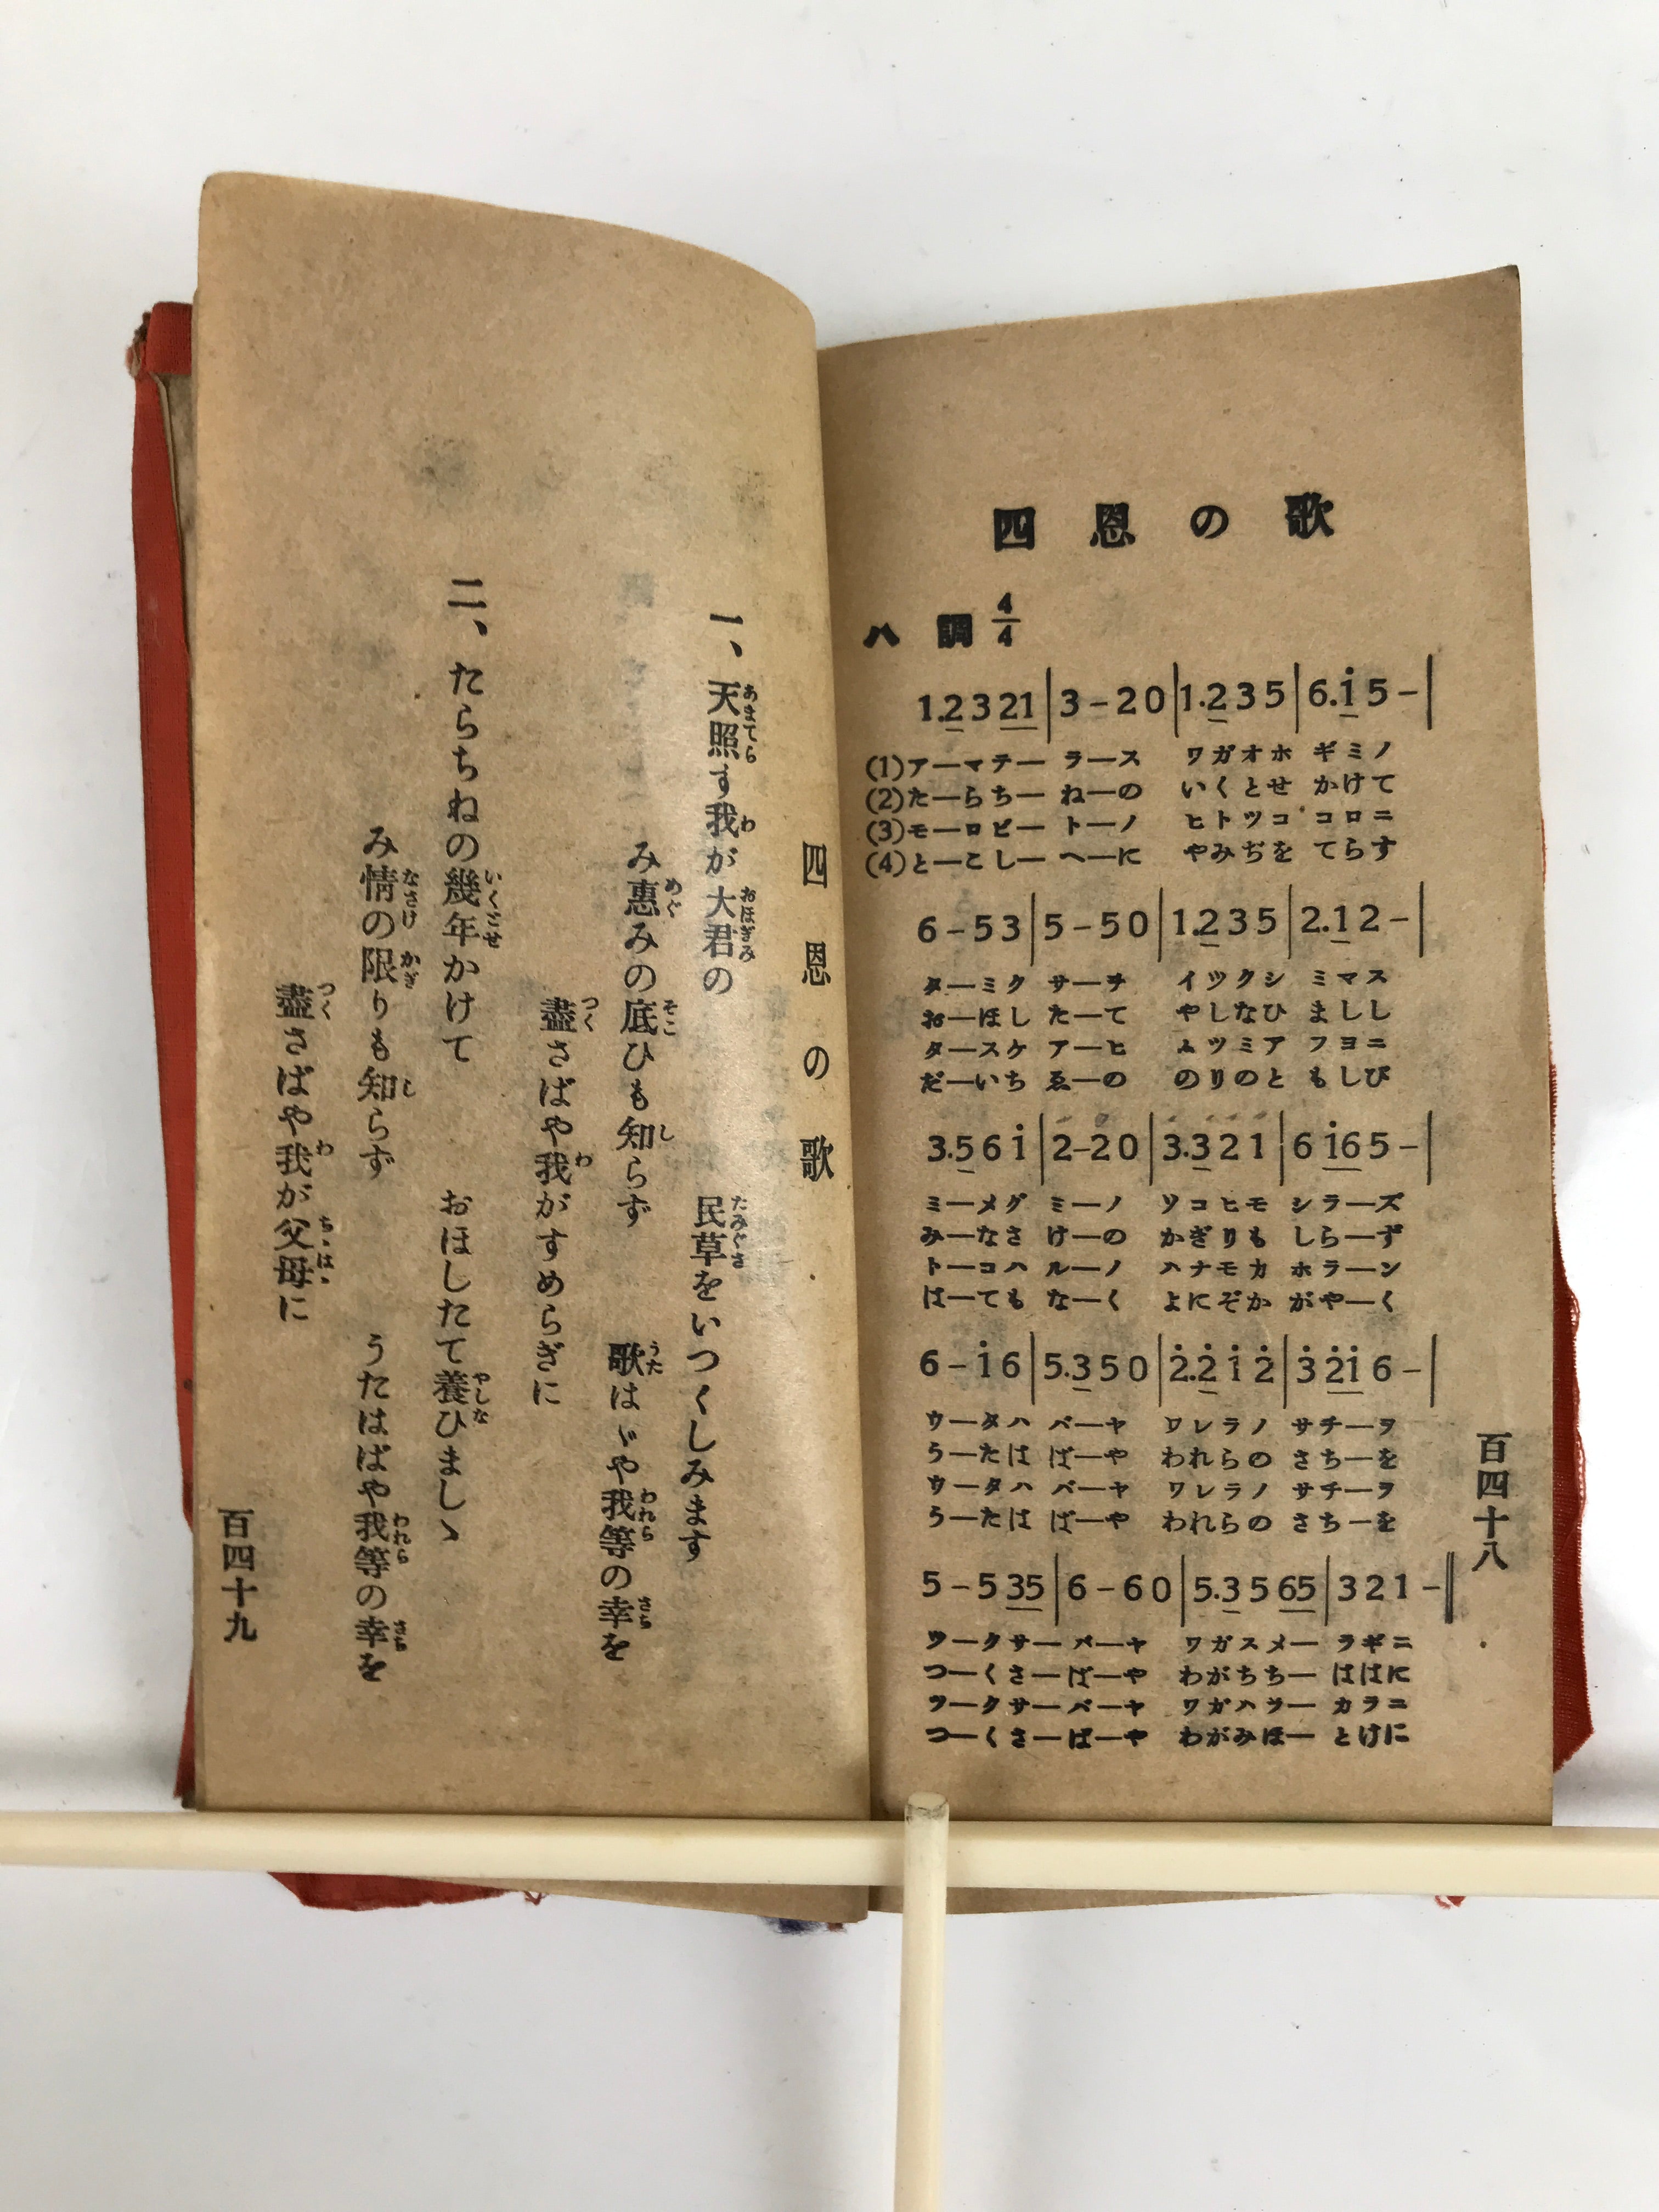 四恩の歌
ハ調 4/4
1.2 3 21|3-20|1.2 3 5|6.i 5-|
(1)アーマテー ラース ワガオホ ギミノ
(2)たーらちー ねーの いくとせ かけて
(3)モーロビー トーノ ヒトツコ コロニ
(4)とーこしー へーに やみぢを てらす
6-53|5-50|1.2 3 5|2.1 2-|
ターミク サーヲ イツクシ ミマス
おーほし たーて やしなひ ましし
タースケ アーヒ ムツミア フヨニ
だーいち ゑーの のりのと もしび
3.5 6 i|2-20|3.3 2 1|6 i6 5-|
ミーメグ ミーノ ソコヒモ シラーズ
みーなさ けーの かぎりも しらーず
トーコハ ルーノ ハナモカ ホラーン
はーても なーく よにぞか がやーく
6-i6|5.3 5 0|2̇.2̇ i 2̇|3̇ 2̇i 6-|
ウータハ バーヤ ワレラノ サチーヲ
うーたは ばーや われらの さちーを
ウータハ バーヤ ワレラノ サチーヲ
うーたは ばーや われらの さちーを
5-5 35|6-60|5.3 5 65|3 2 1-‖
ツークサー バーヤ ワガスメー ラギニ
つーくさー ばーや わがちちー ははに
ツークサー バーヤ ワガハラー カラニ
つーくさー ばーや わがみほー とけに
百四十八
四恩の歌
一、天照す我が大君の 民草をいつくしみます
あまてら わ おほぎみ たみぐさ
み惠みの底ひも知らず 歌はゞや我等の幸を
めぐ そこ し うた われら さち
盡さばや我がすめらぎに
つく わ
二、たらちねの幾年かけて おほしたて養ひましゝ
いくとせ やしな
み情の限りも知らず うたはばや我等の幸を
なさけ かぎ し われら さち
盡さばや我が父母に
つく わ ちゝはゝ
百四十九